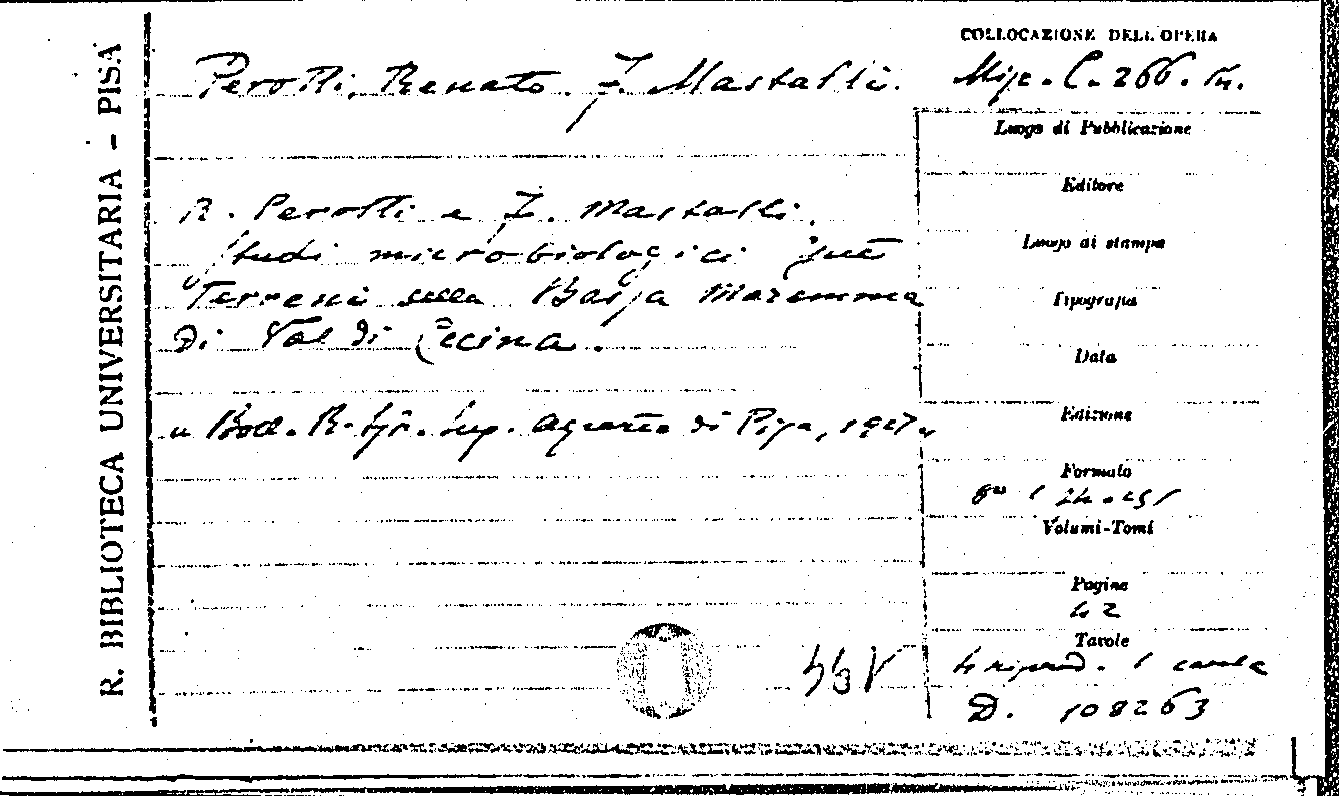 R. BIBLIOTECA UNIVERSITARIA - PISA
Perotti, Renato. J. Mastalli.
R. Perotti e J. Mastalli.
Studi microbiologici sui
Terreni della Bassa Maremma
di Val di Cecina.
" Boll. R. Ist. Sup. Agrario di Pisa, 1927 "
COLLOCAZIONE DELL'OPERA
Misc. C. 266.
Luogo di Pubblicazione
Editore
Luogo di stampa
Tipografia
Data
Edizione
Formato
8°
Volumi-Tomi
Pagine
42
Tavole
4 riprod. 1 carta
D. 108263